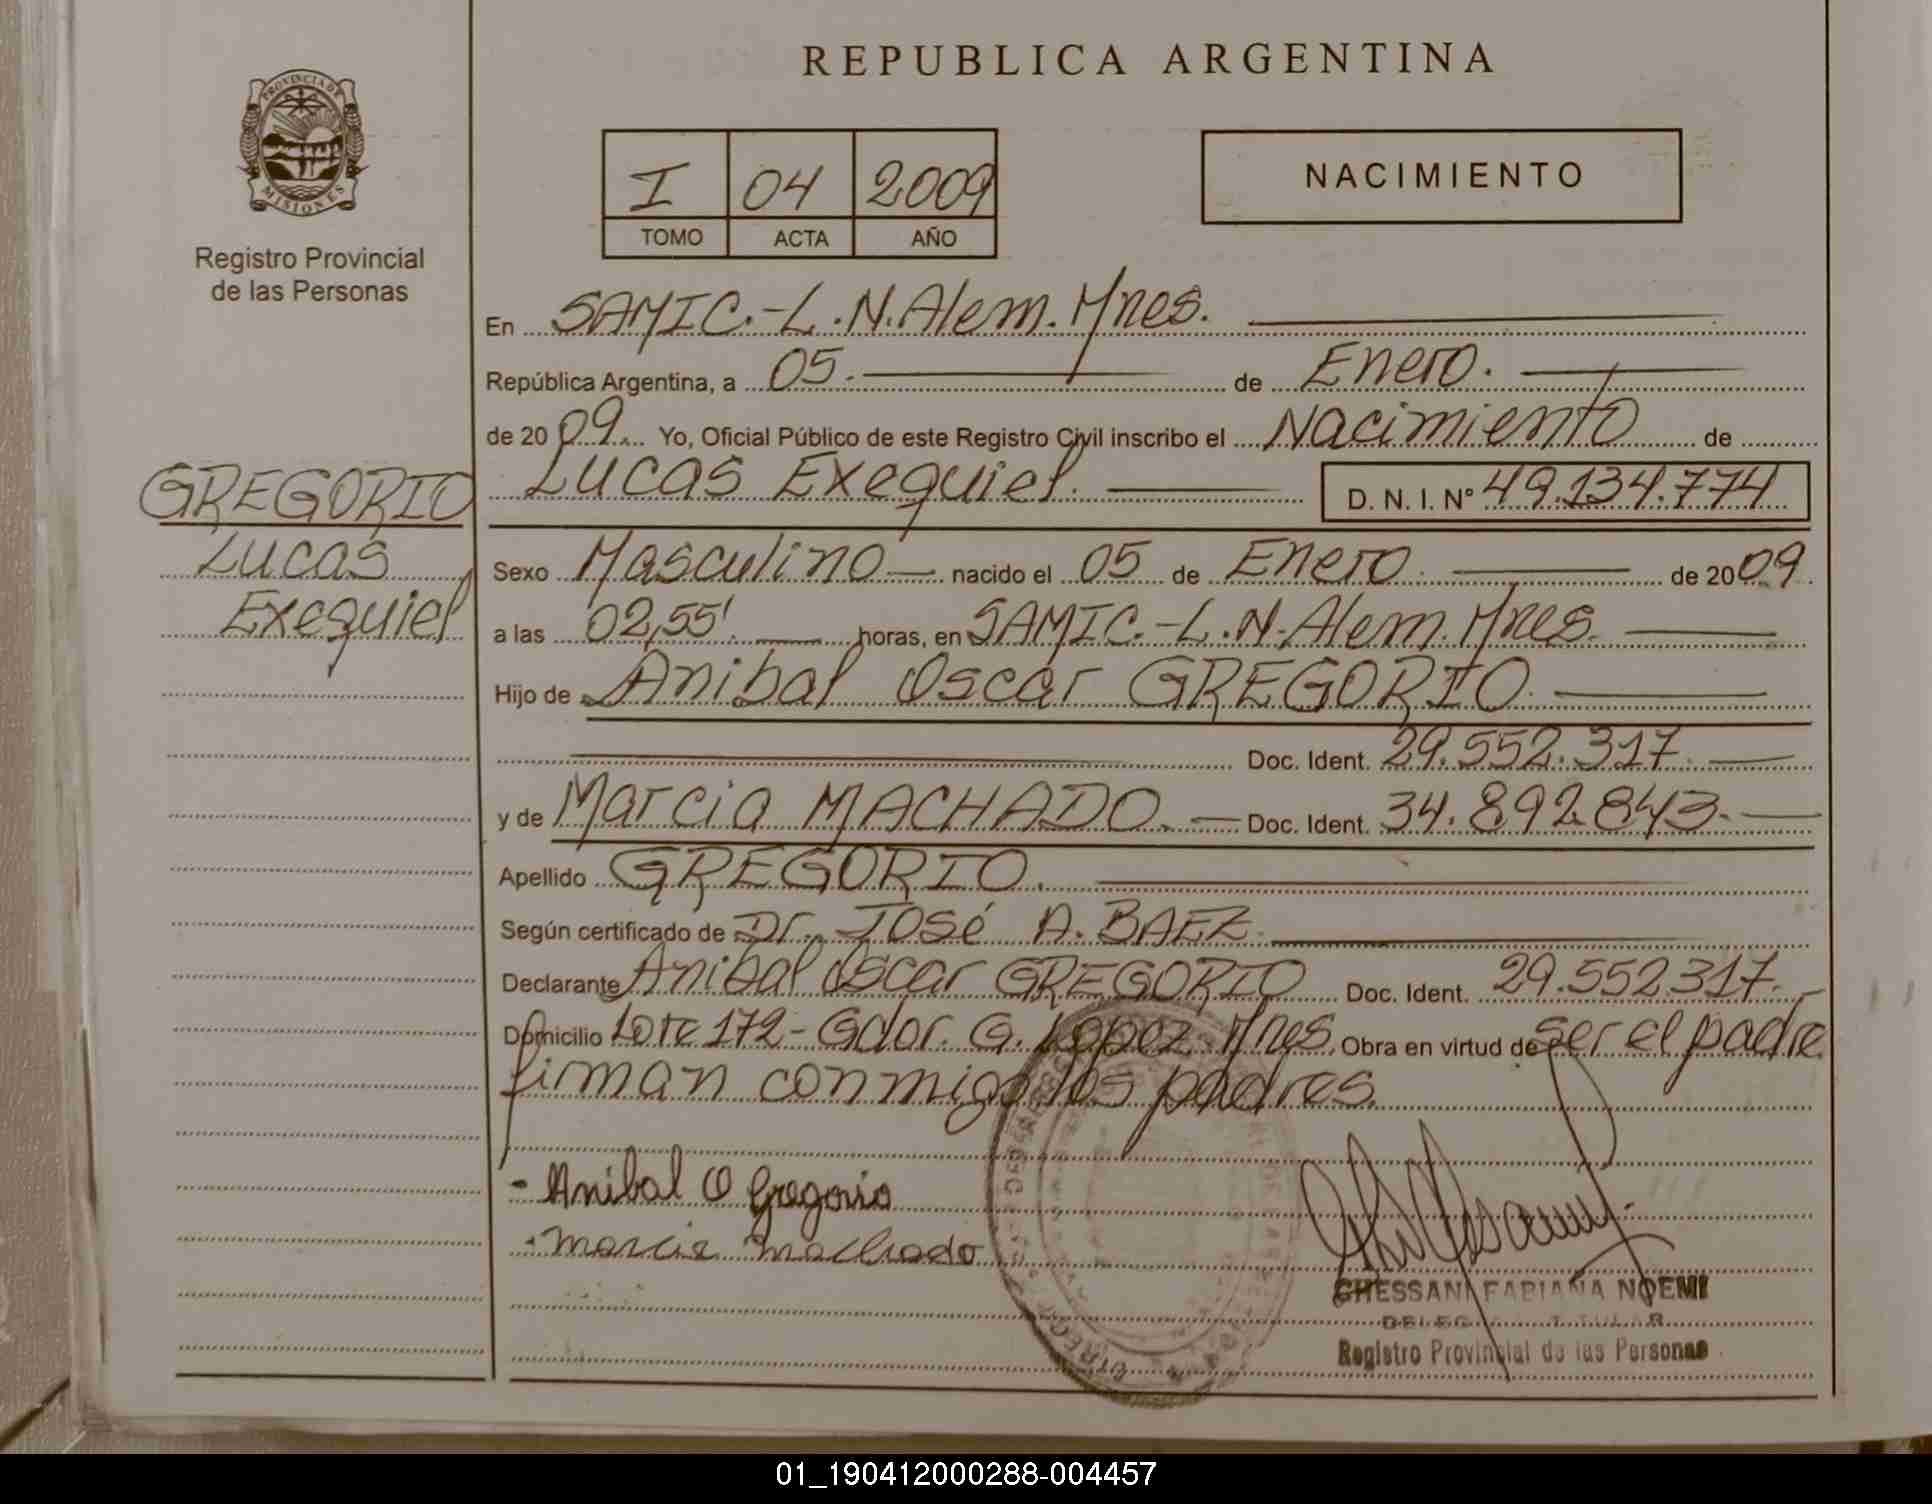 REPUBLICA ARGENTINA
PROVINCIA DE
MISIONES
Registro Provincial
de las Personas
I 04 2009
TOMO ACTA AÑO
NACIMIENTO
En SAMIC.-L.N.Alem.Mnes.
República Argentina, a 05. de Enero.
de 2009. Yo, Oficial Público de este Registro Civil inscribo el Nacimiento de
Lucas Exequiel. D. N. I. Nº 49.134.774
GREGORIO
Lucas
Exequiel
Sexo Masculino nacido el 05 de Enero de 2009.
a las 02,55'. horas, en SAMIC.-L.N.Alem.Mnes.
Hijo de Anibal Oscar GREGORIO.
Doc. Ident. 29.552.317.
y de Marcia MACHADO. Doc. Ident. 34.892.843.
Apellido GREGORIO.
Según certificado de Dr. José A. BAEZ.
Declarante Anibal Oscar GREGORIO Doc. Ident. 29.552.317.
Domicilio Lote 172 - Gdor. G. Lopez. Mnes. Obra en virtud de ser el padre.
firman conmigo los padres.
- Anibal O Gregorio
- marcia machado
GHESSANI FABIANA NOEMI
DELEGADA TITULAR
Registro Provincial de las Personas
01_190412000288-004457